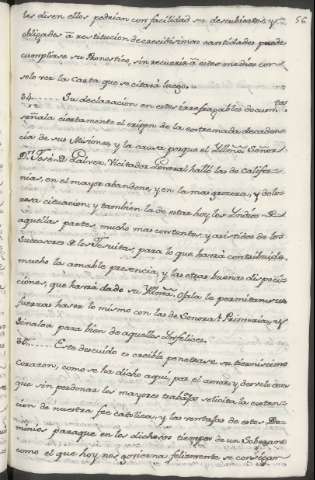 56
les disen ellos podrian con facilidad ser descubiertos, y
obligados à restitucion de crecidísimas cantidades puede
cumplirse su Pronostico, sin recurrir à estos medios con
solo ver la Carta que se citará luego.
34. Su declaracion en estos irrefragables documtos
señala ciertamente el origen de la estremada decaden
cia de sus Misiones, y la causa porque el Yllmo Señor
Dn Josè de Galvez Vicitador General halló las de Califor
nias, en el mayor abandono, y en la mas grocera, y dolo
rosa cituacion; y tambien la de estar hoy los Yndios de
aquellas partes, mucho mas contentos, y asistidos de los
Succesores de los Jesuitas, para lo que habrá contribuido
mucho la amable precencia, y las otras buenas disposi
ciones, que habrá dado su Yllma Ojala le permitan sus
fuerzas haser lo mismo con las de Sonora, Pimeria, y
Sinaloa para bien de aquellos Ynfelices.
35. Este descuido es creible penetrase su tiernisimo
corazon, como se ha dicho aquí por el amor, y desvelo con
que sin perdonar los mayores trabajos solicita la esten
cion de nuestra fee catolica, y las ventajas de estos Do
minios paraque en los dichosos tiempos de un Soberano
como el que hoy nos govierna felizmente se consigan